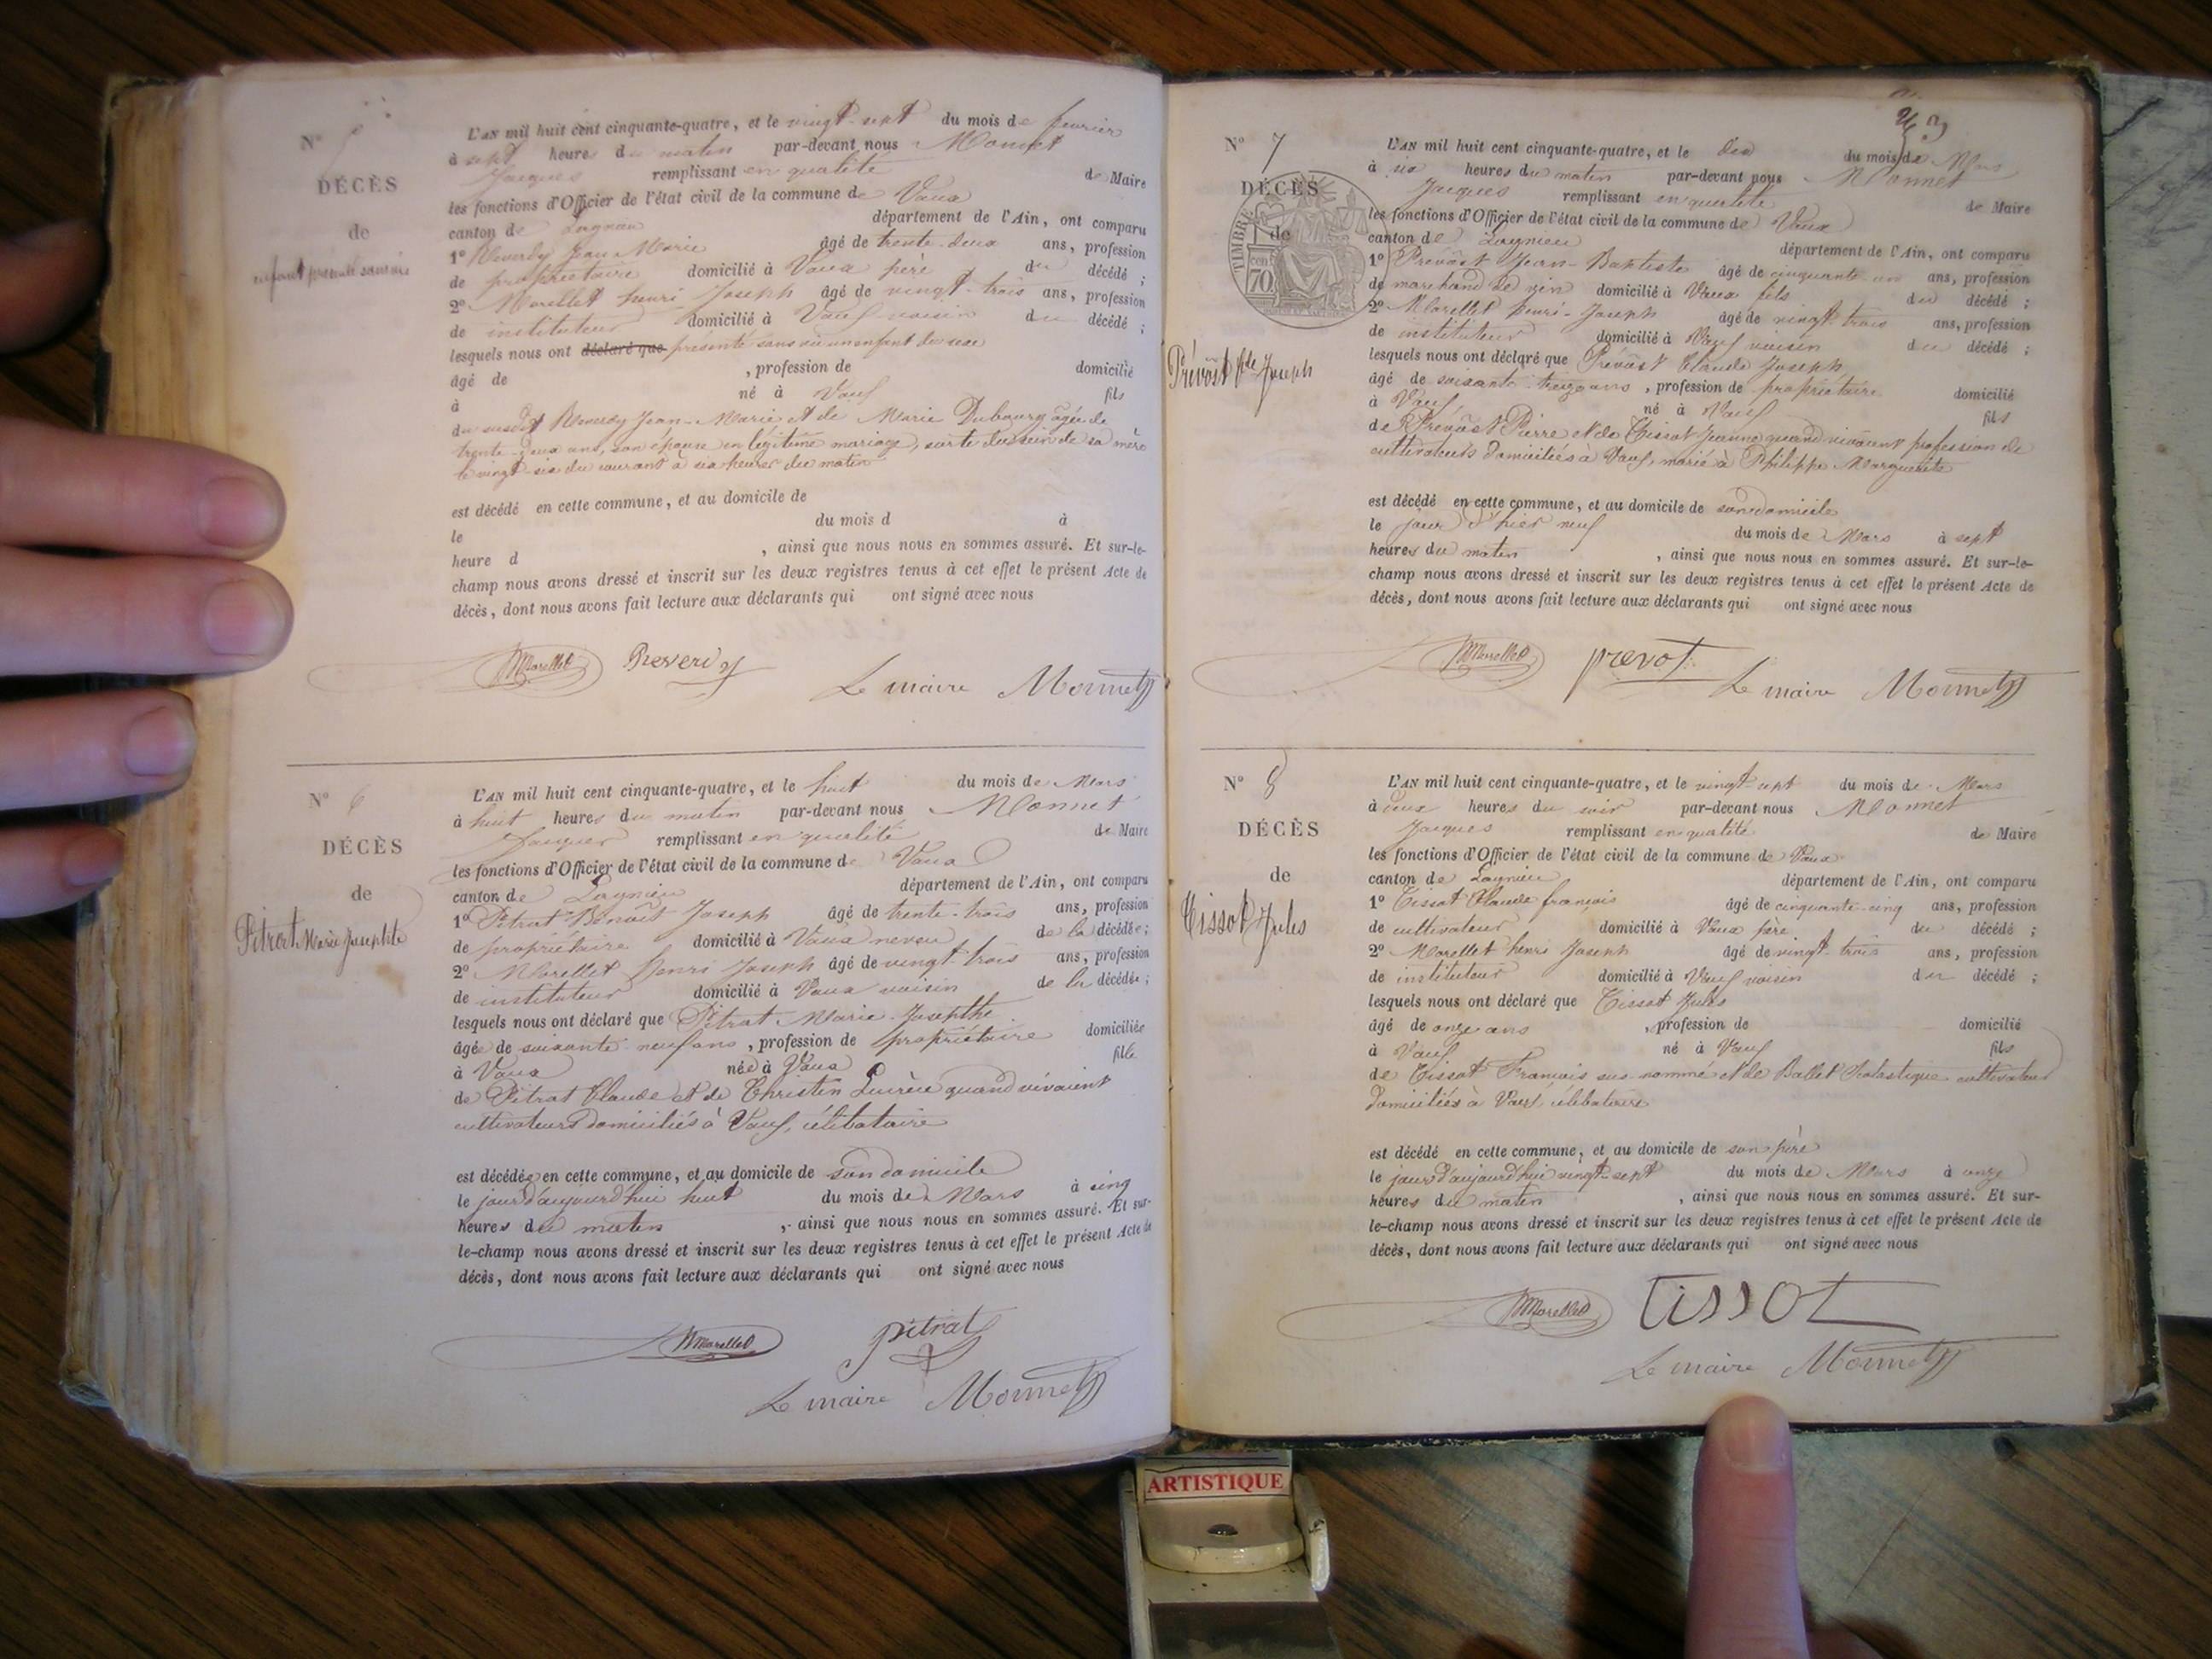 N° 5
DÉCÈS
de
enfant présenté sans vie
L'AN mil huit cent cinquante-quatre, et le vingt-sept du mois de février
à sept heures du matin par-devant nous Monnet
Jacques remplissant en qualité de Maire
les fonctions d'Officier de l'état civil de la commune de Vaux
canton de Lagnieu département de l'Ain, ont comparu
1° Reverdy Jean Marie âgé de trente-deux ans, profession
de propriétaire domicilié à Vaux père du décédé ;
2° Morellet henri Joseph âgé de vingt-trois ans, profession
de instituteur domicilié à Vaux voisin du décédé ;
lesquels nous ont déclaré que présenté sans vie un enfant du sexe
âgé de , profession de domicilié
à né à Vaux fils
du susdit Reverdy Jean-Marie et de Marie Dubourg âgée de
trente-deux ans, son épouse en légitime mariage, sorti du sein de sa mère
le vingt six du courant à six heures du matin
est décédé en cette commune, et au domicile de
le du mois d à
heure d , ainsi que nous nous en sommes assuré. Et sur-le-
champ nous avons dressé et inscrit sur les deux registres tenus à cet effet le présent Acte de
décès, dont nous avons fait lecture aux déclarants qui ont signé avec nous
HMorellet Reverdy
Le maire Monnet
N° 6
DÉCÈS
de
Pitrat Marie Josephte
L'AN mil huit cent cinquante-quatre, et le huit du mois de Mars
à huit heures du matin par-devant nous Monnet
Jacques remplissant en qualité de Maire
les fonctions d'Officier de l'état civil de la commune de Vaux
canton de Lagnieu département de l'Ain, ont comparu
1° Pitrat Benoît Joseph âgé de trente-trois ans, profession
de propriétaire domicilié à Vaux neveu de la décédée ;
2° Morellet Henri Joseph âgé de vingt-trois ans, profession
de instituteur domicilié à Vaux voisin de la décédée ;
lesquels nous ont déclaré que Pitrat Marie-Josephte
âgée de soixante-neuf ans , profession de propriétaire domiciliée
à Vaux née à Vaux fille
de Pitrat Claude et de Christin Lucrèce quand vivaient
cultivateurs domiciliés à Vaux, célibataire
est décédée en cette commune, et au domicile de son domicile
le jour d'aujourd'hui huit du mois de Mars à cinq
heures du matin , ainsi que nous nous en sommes assuré. Et sur-
le-champ nous avons dressé et inscrit sur les deux registres tenus à cet effet le présent Acte de
décès, dont nous avons fait lecture aux déclarants qui ont signé avec nous
HMorellet pitrat
Le maire Monnet
N° 7
DÉCÈS
de
TIMBRE
70
Prévost Cde Joseph
L'AN mil huit cent cinquante-quatre, et le dix du mois de Mars
à six heures du matin par-devant nous Monnet
Jacques remplissant en qualité de Maire
les fonctions d'Officier de l'état civil de la commune de Vaux
canton de Lagnieu département de l'Ain, ont comparu
1° Prévost Jean-Baptiste âgé de cinquante-un ans, profession
de marchand de vin domicilié à Vaux fils du décédé ;
2° Morellet henri-Joseph âgé de vingt-trois ans, profession
de instituteur domicilié à Vaux voisin du décédé ;
lesquels nous ont déclaré que Prévost Claude Joseph
âgé de soixante-treize ans , profession de propriétaire domicilié
à Vaux né à Vaux fils
de Prévost Pierre et de Tissot Jeanne quand vivaient profession de
cultivateurs domiciliés à Vaux, marié à Philippe Marguerite
est décédé en cette commune, et au domicile de son domicile
le jour d'hier neuf du mois de Mars à sept
heures du matin , ainsi que nous nous en sommes assuré. Et sur-le-
champ nous avons dressé et inscrit sur les deux registres tenus à cet effet le présent Acte de
décès, dont nous avons fait lecture aux déclarants qui ont signé avec nous
HMorellet prevot
Le maire Monnet
N° 8
DÉCÈS
de
Tissot Jules
L'AN mil huit cent cinquante-quatre, et le vingt sept du mois de Mars
à deux heures du soir par-devant nous Monnet
Jacques remplissant en qualité de Maire
les fonctions d'Officier de l'état civil de la commune de Vaux
canton de Lagnieu département de l'Ain, ont comparu
1° Tissot Claude françois âgé de cinquante-cinq ans, profession
de cultivateur domicilié à Vaux père du décédé ;
2° Morellet henri Joseph âgé de vingt-trois ans, profession
de instituteur domicilié à Vaux voisin du décédé ;
lesquels nous ont déclaré que Tissot Jules
âgé de onze ans , profession de domicilié
à Vaux né à Vaux fils
de Tissot François sus-nommé et de Ballet Scolastique cultivateurs
domiciliés à Vaux, célibataire
est décédé en cette commune, et au domicile de son père
le jour d'aujourd'hui vingt-sept du mois de Mars à onze
heures du matin , ainsi que nous nous en sommes assuré. Et sur-
le-champ nous avons dressé et inscrit sur les deux registres tenus à cet effet le présent Acte de
décès, dont nous avons fait lecture aux déclarants qui ont signé avec nous
HMorellet Tissot
Le maire Monnet
ARTISTIQUE